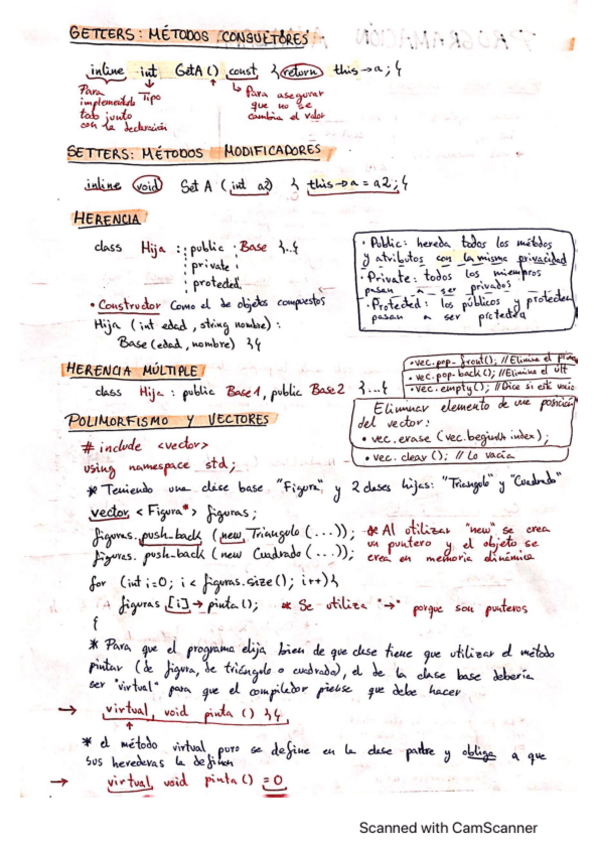 GETTERS: MÉTODOS CONSULTORES
inline int GetA() const }return this->a;{
Para implementarlo todo junto con la declaración
Tipo
Para asegurar que no se cambia el valor
SETTERS: MÉTODOS MODIFICADORES
inline void Set A (int a2) } this->a = a2; {
HERENCIA
class Hija : public Base }..{
private
protected
• Constructor Como el de objetos compuestos
Hija (int edad, string nombre) :
Base (edad, nombre) }{
• Public: hereda todos los métodos
y atributos con la misma privacidad
• Private: todos los miembros
pasan a ser privados
• Protected: los públicos y protected
pasan a ser protected
HERENCIA MÚLTIPLE
class Hija : public Base1, public Base2 }...{
• vec.pop_front(); //Elimina el
• vec.pop_back(); //Elimina el ult
• vec.empty(); //Dice si está vacio
Eliminar elemento de una posición
del vector:
• vec.erase (vec.begin+index);
• vec. clear (); // Lo vacia
POLIMORFISMO Y VECTORES
# include <vector>
using namespace std;
* Teniendo una clase base "Figura" y 2 clases hijas: "Triangulo" y "Cuadrado"
vector < Figura*> figuras;
figuras. push_back (new Triangulo (...));
figuras. push_back (new Cuadrado (...));
* Al utilizar "new" se crea
un puntero y el objeto se
crea en memoria dinámica
for (int i=0; i < figuras.size(); i++)}
figuras [i]-> pinta(); * Se utiliza "->" porque son punteros
{
* Para que el programa elija bien de que clase tiene que utilizar el método
pintar (de figura, de triángulo o cuadrado), el de la clase base debería
ser "virtual" para que el compilador piense que debe hacer
→ virtual void pinta () }{
* el método virtual puro se define en la clase padre y obliga a que
sus herederas la definan
→ virtual void pinta() = 0
Scanned with CamScanner